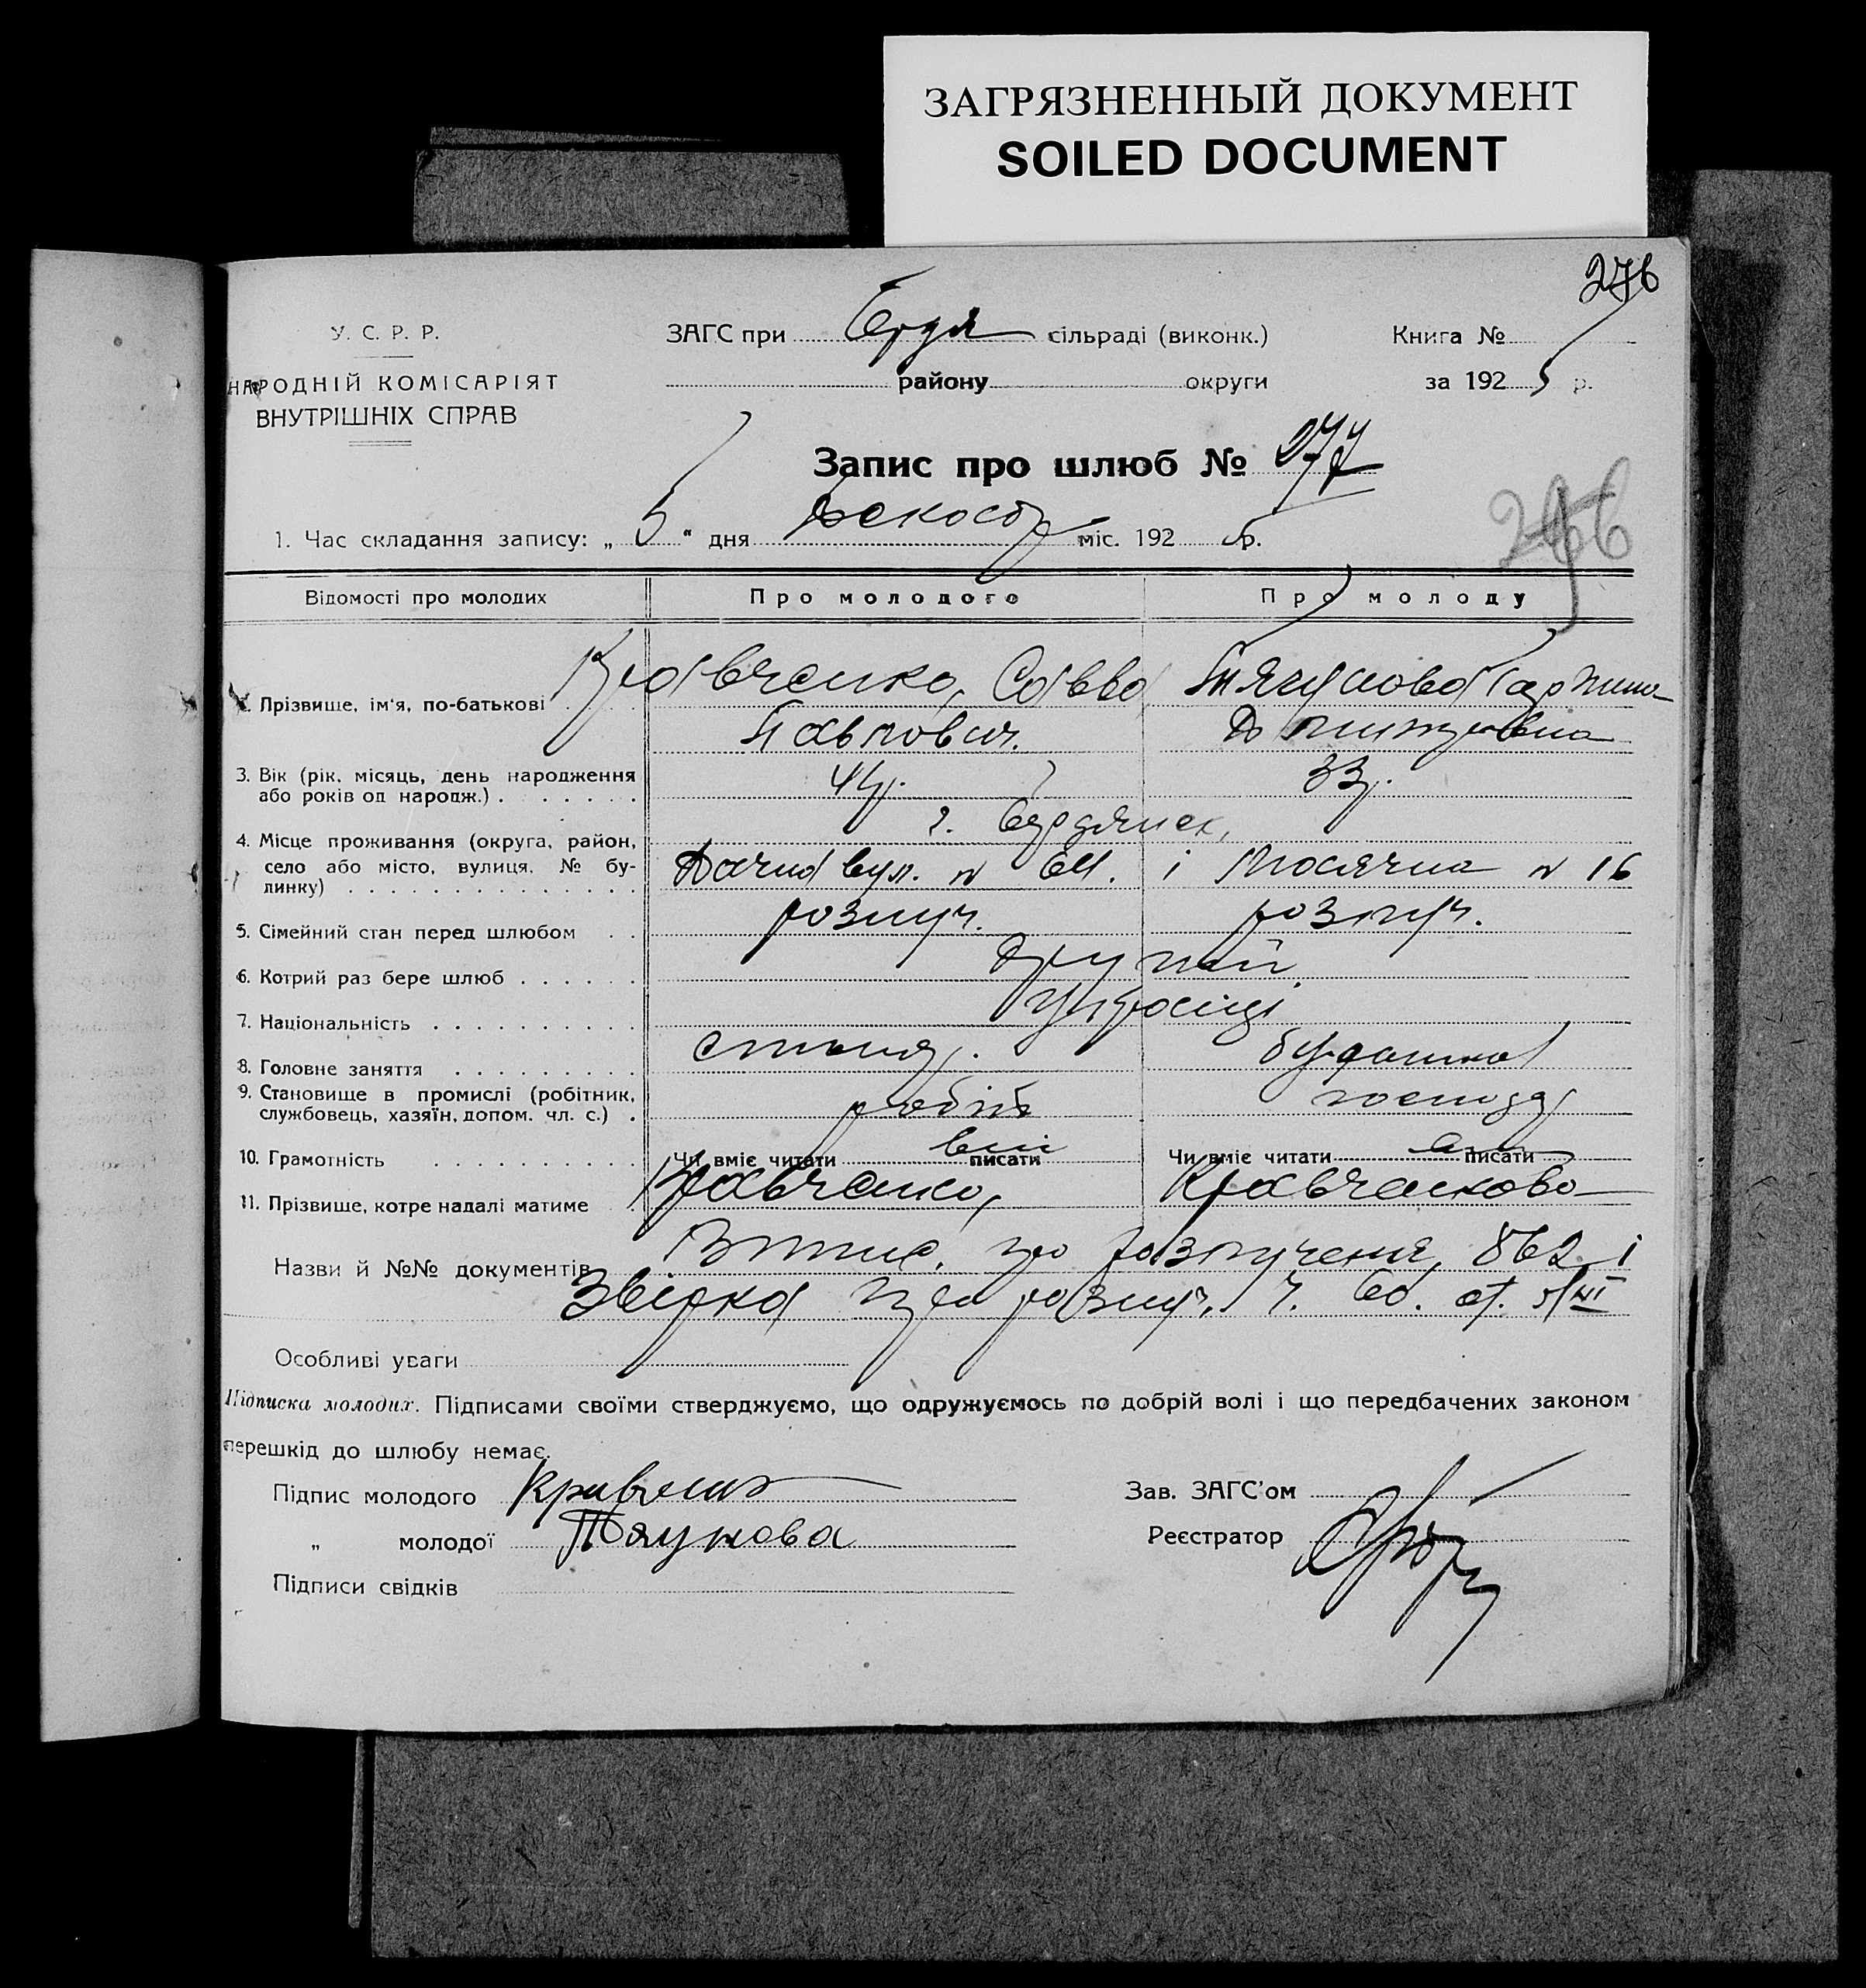 ЗАГРЯЗНЕННЫЙ ДОКУМЕНТ
SOILED DOCUMENT
276
У. С. Р. Р.
НАРОДНІЙ КОМІСАРІЯТ
ВНУТРІШНІХ СПРАВ
ЗАГС при Бердя сільраді (виконк.)
району округи
Книга №
за 1925 р.
Запис про шлюб № 277
1. Час складання запису: „5" дня міс. 1925 р.
Відомості про молодих Про молодого Про молоду
2. Прізвище, ім'я, по-батькові Кравченко, Савва
3. Вік (рік, місяць, день народження
або років од народж.) 44р. 33р.
г. Бердянск,
4. Місце проживання (округа, район,
село або місто, вулиця, № бу-
динку) Дачна вул. № 64. і № 16
5. Сімейний стан перед шлюбом розлуч. розлуч.
6. Котрий раз бере шлюб другий
7. Національність українці
8. Головне заняття столяр. будашня
9. Становище в промислі (робітник,
службовець, хазяїн, допом. чл. с.) робітн господ
10. Грамотність Чи вміє читати вміє писати Чи вміє читати писати
11. Прізвище, котре надалі матиме Кравченко, Кравченкова
Назви й №№ документів про розлучення 862 і
про розлуч. ч. 60. от. 5/XI
Особливі уваги
Підписка молодих. Підписами своїми стверджуємо, що одружуємось по добрій волі і що передбачених законом
перешкід до шлюбу немає.
Підпис молодого Кравченко
„ молодої Тягунова
Підписи свідків
Зав. ЗАГС'ом
Реєстратор